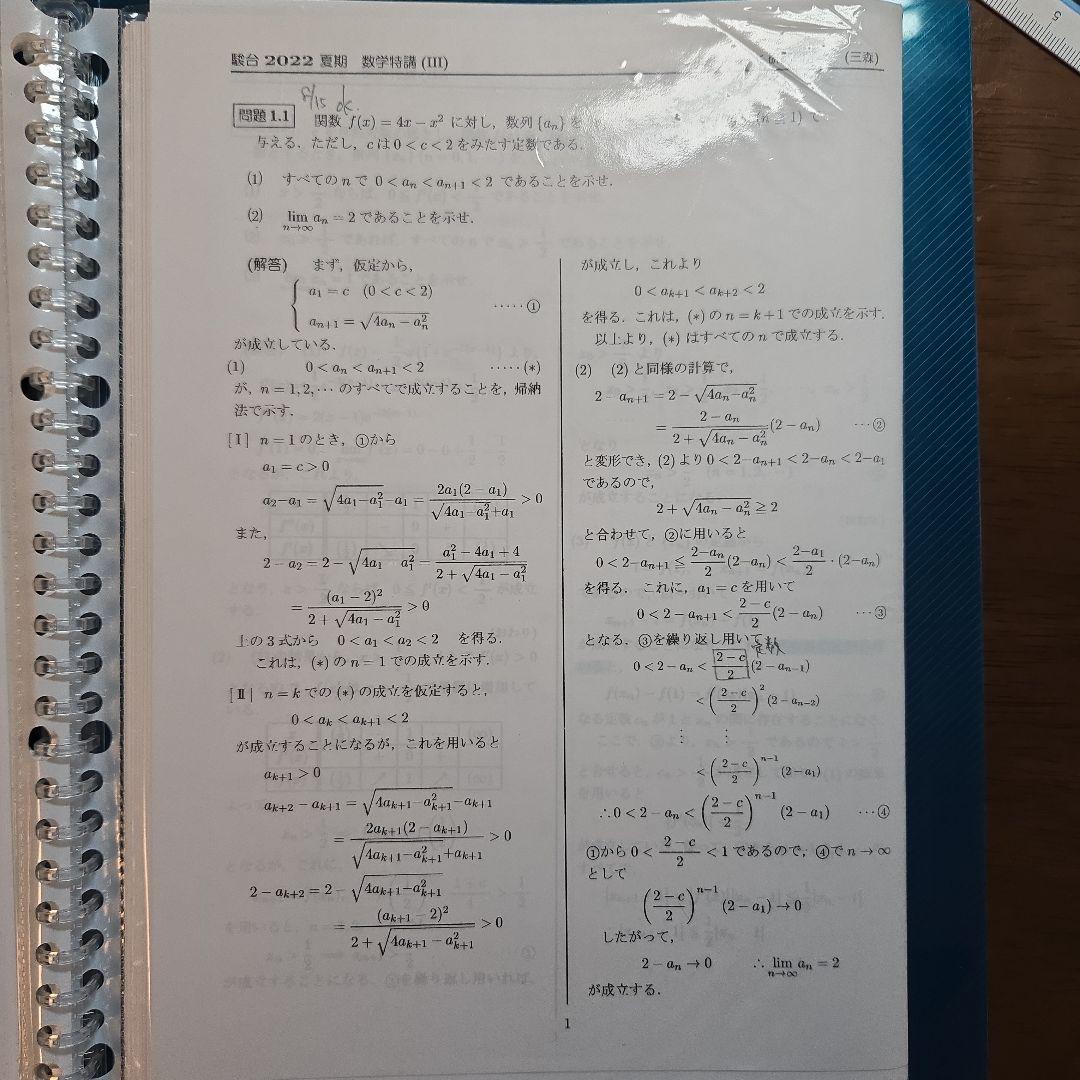 駿台 2022 夏期 数学特講 (III)
(三森)
8/15 ok.
問題 1.1 関数 f(x) = 4x − x² に対し，数列 {aₙ} を
与える．ただし，c は 0 < c < 2 をみたす定数である．
(1) すべての n で 0 < aₙ < aₙ₊₁ < 2 であることを示せ．
(2) lim_{n→∞} aₙ = 2 であることを示せ．
(解答) まず，仮定から，
{ a₁ = c (0 < c < 2)
aₙ₊₁ = √(4aₙ − aₙ²) ·····①
が成立している．
(1) 0 < aₙ < aₙ₊₁ < 2 ·····(*)
が，n = 1, 2, ··· のすべてで成立することを，帰納
法で示す．
[I] n = 1 のとき，①から
a₁ = c > 0
a₂−a₁ = √(4a₁−a₁²)−a₁ = 2a₁(2 − a₁)/(√(4a₁−a₁²)+a₁) > 0
また，
2 − a₂ = 2 − √(4a₁ − a₁²) = (a₁² − 4a₁ + 4)/(2 + √(4a₁ − a₁²))
= (a₁ − 2)²/(2 + √(4a₁ − a₁²)) > 0
上の 3 式から 0 < a₁ < a₂ < 2 を得る．
これは，(*) の n = 1 での成立を示す．
[II] n = k での (*) の成立を仮定すると，
0 < aₖ < aₖ₊₁ < 2
が成立することになるが，これを用いると
aₖ₊₁ > 0
aₖ₊₂ − aₖ₊₁ = √(4aₖ₊₁−aₖ₊₁²) − aₖ₊₁
= 2aₖ₊₁(2 − aₖ₊₁)/(√(4aₖ₊₁−aₖ₊₁²)+aₖ₊₁) > 0
2 − aₖ₊₂ = 2 − √(4aₖ₊₁−aₖ₊₁²)
= (aₖ₊₁ − 2)²/(2 + √(4aₖ₊₁ − aₖ₊₁²)) > 0
が成立し，これより
0 < aₖ₊₁ < aₖ₊₂ < 2
を得る．これは，(*) の n = k+1 での成立を示す．
以上より，(*) はすべての n で成立する．
(2) (2) と同様の計算で，
2 − aₙ₊₁ = 2 − √(4aₙ−aₙ²)
= (2 − aₙ)/(2 + √(4aₙ − aₙ²)) (2 − aₙ) ···②
と変形でき，(2) より 0 < 2−aₙ₊₁ < 2−aₙ < 2−a₁
であるので，
2 + √(4aₙ − aₙ²) ≧ 2
と合わせて，②に用いると
0 < 2−aₙ₊₁ ≦ (2−aₙ)/2 (2−aₙ) < (2−a₁)/2 · (2−aₙ)
を得る．これに，a₁ = c を用いて
0 < 2 − aₙ₊₁ < (2 − c)/2 (2 − aₙ) ···③
となる．③を繰り返し用いて
定数
0 < 2 − aₙ < (2 − c)/2 (2 − aₙ₋₁)
< ((2 − c)/2)² (2 − aₙ₋₂)
⋮ ⋮
< ((2 − c)/2)ⁿ⁻¹ (2 − a₁)
∴ 0 < 2 − aₙ < ((2 − c)/2)ⁿ⁻¹ (2 − a₁) ···④
①から 0 < (2 − c)/2 < 1 であるので，④で n → ∞
として
((2 − c)/2)ⁿ⁻¹ (2 − a₁) → 0
したがって，
2 − aₙ → 0 ∴ lim_{n→∞} aₙ = 2
が成立する．
1
5